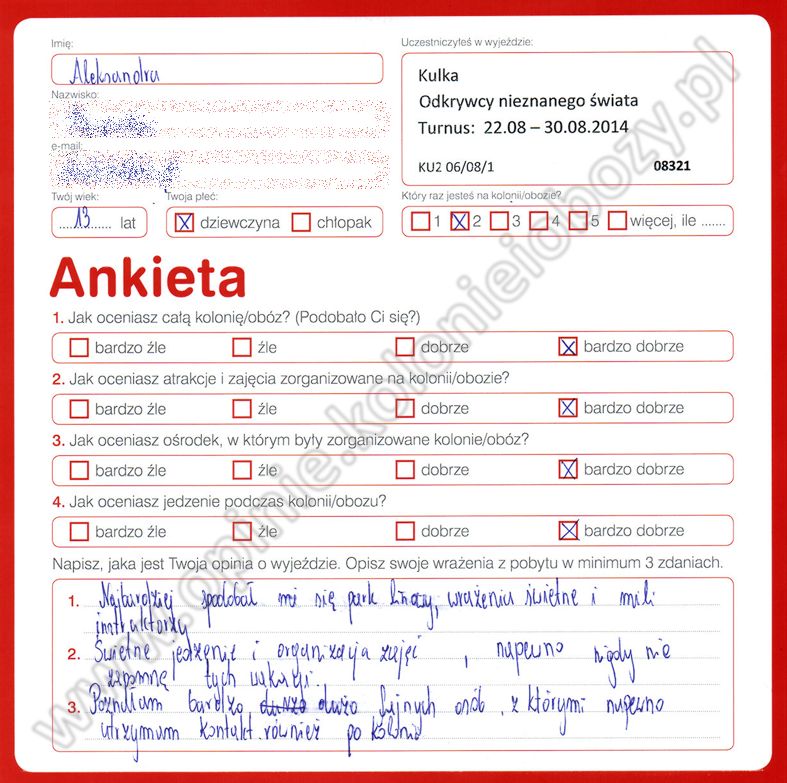 Imię:
Aleksandra
Nazwisko:
e-mail:
Twój wiek:
13 lat
Twoja płeć:
dziewczyna chłopak
Uczestniczyłeś w wyjeździe:
Kulka
Odkrywcy nieznanego świata
Turnus: 22.08 – 30.08.2014
KU2 06/08/1 08321
Który raz jesteś na kolonii/obozie?
1 2 3 4 5 więcej, ile .......
Ankieta
1. Jak oceniasz całą kolonię/obóz? (Podobało Ci się?)
bardzo źle źle dobrze bardzo dobrze
2. Jak oceniasz atrakcje i zajęcia zorganizowane na kolonii/obozie?
bardzo źle źle dobrze bardzo dobrze
3. Jak oceniasz ośrodek, w którym były zorganizowane kolonie/obóz?
bardzo źle źle dobrze bardzo dobrze
4. Jak oceniasz jedzenie podczas kolonii/obozu?
bardzo źle źle dobrze bardzo dobrze
Napisz, jaka jest Twoja opinia o wyjeździe. Opisz swoje wrażenia z pobytu w minimum 3 zdaniach.
1. Najbardziej spodobał mi się park linowy, wrażenia świetne i mili
instruktorzy
2. Świetne jedzenie i organizacja zajęć, napewno nigdy nie
zapomnę tych wakacji.
3. Poznałam bardzo dużo fajnych osób, z którymi napewno
utrzymam kontakt również po kolonii
www.opinie.kolonieiobozy.pl